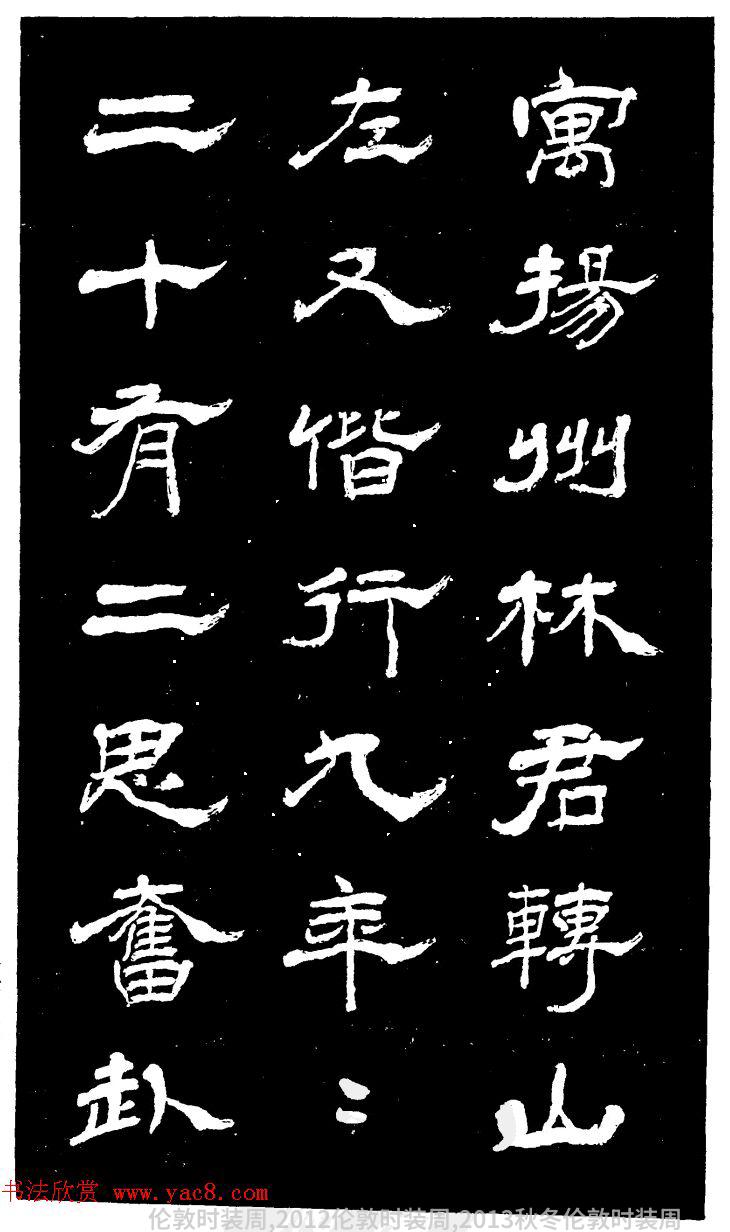 寓揚州林君轉山
左又偕行九年〻
二十有二思奮赴
书法欣赏 www.yac8.com
伦敦时装周,2012伦敦时装周,2013秋冬伦敦时装周